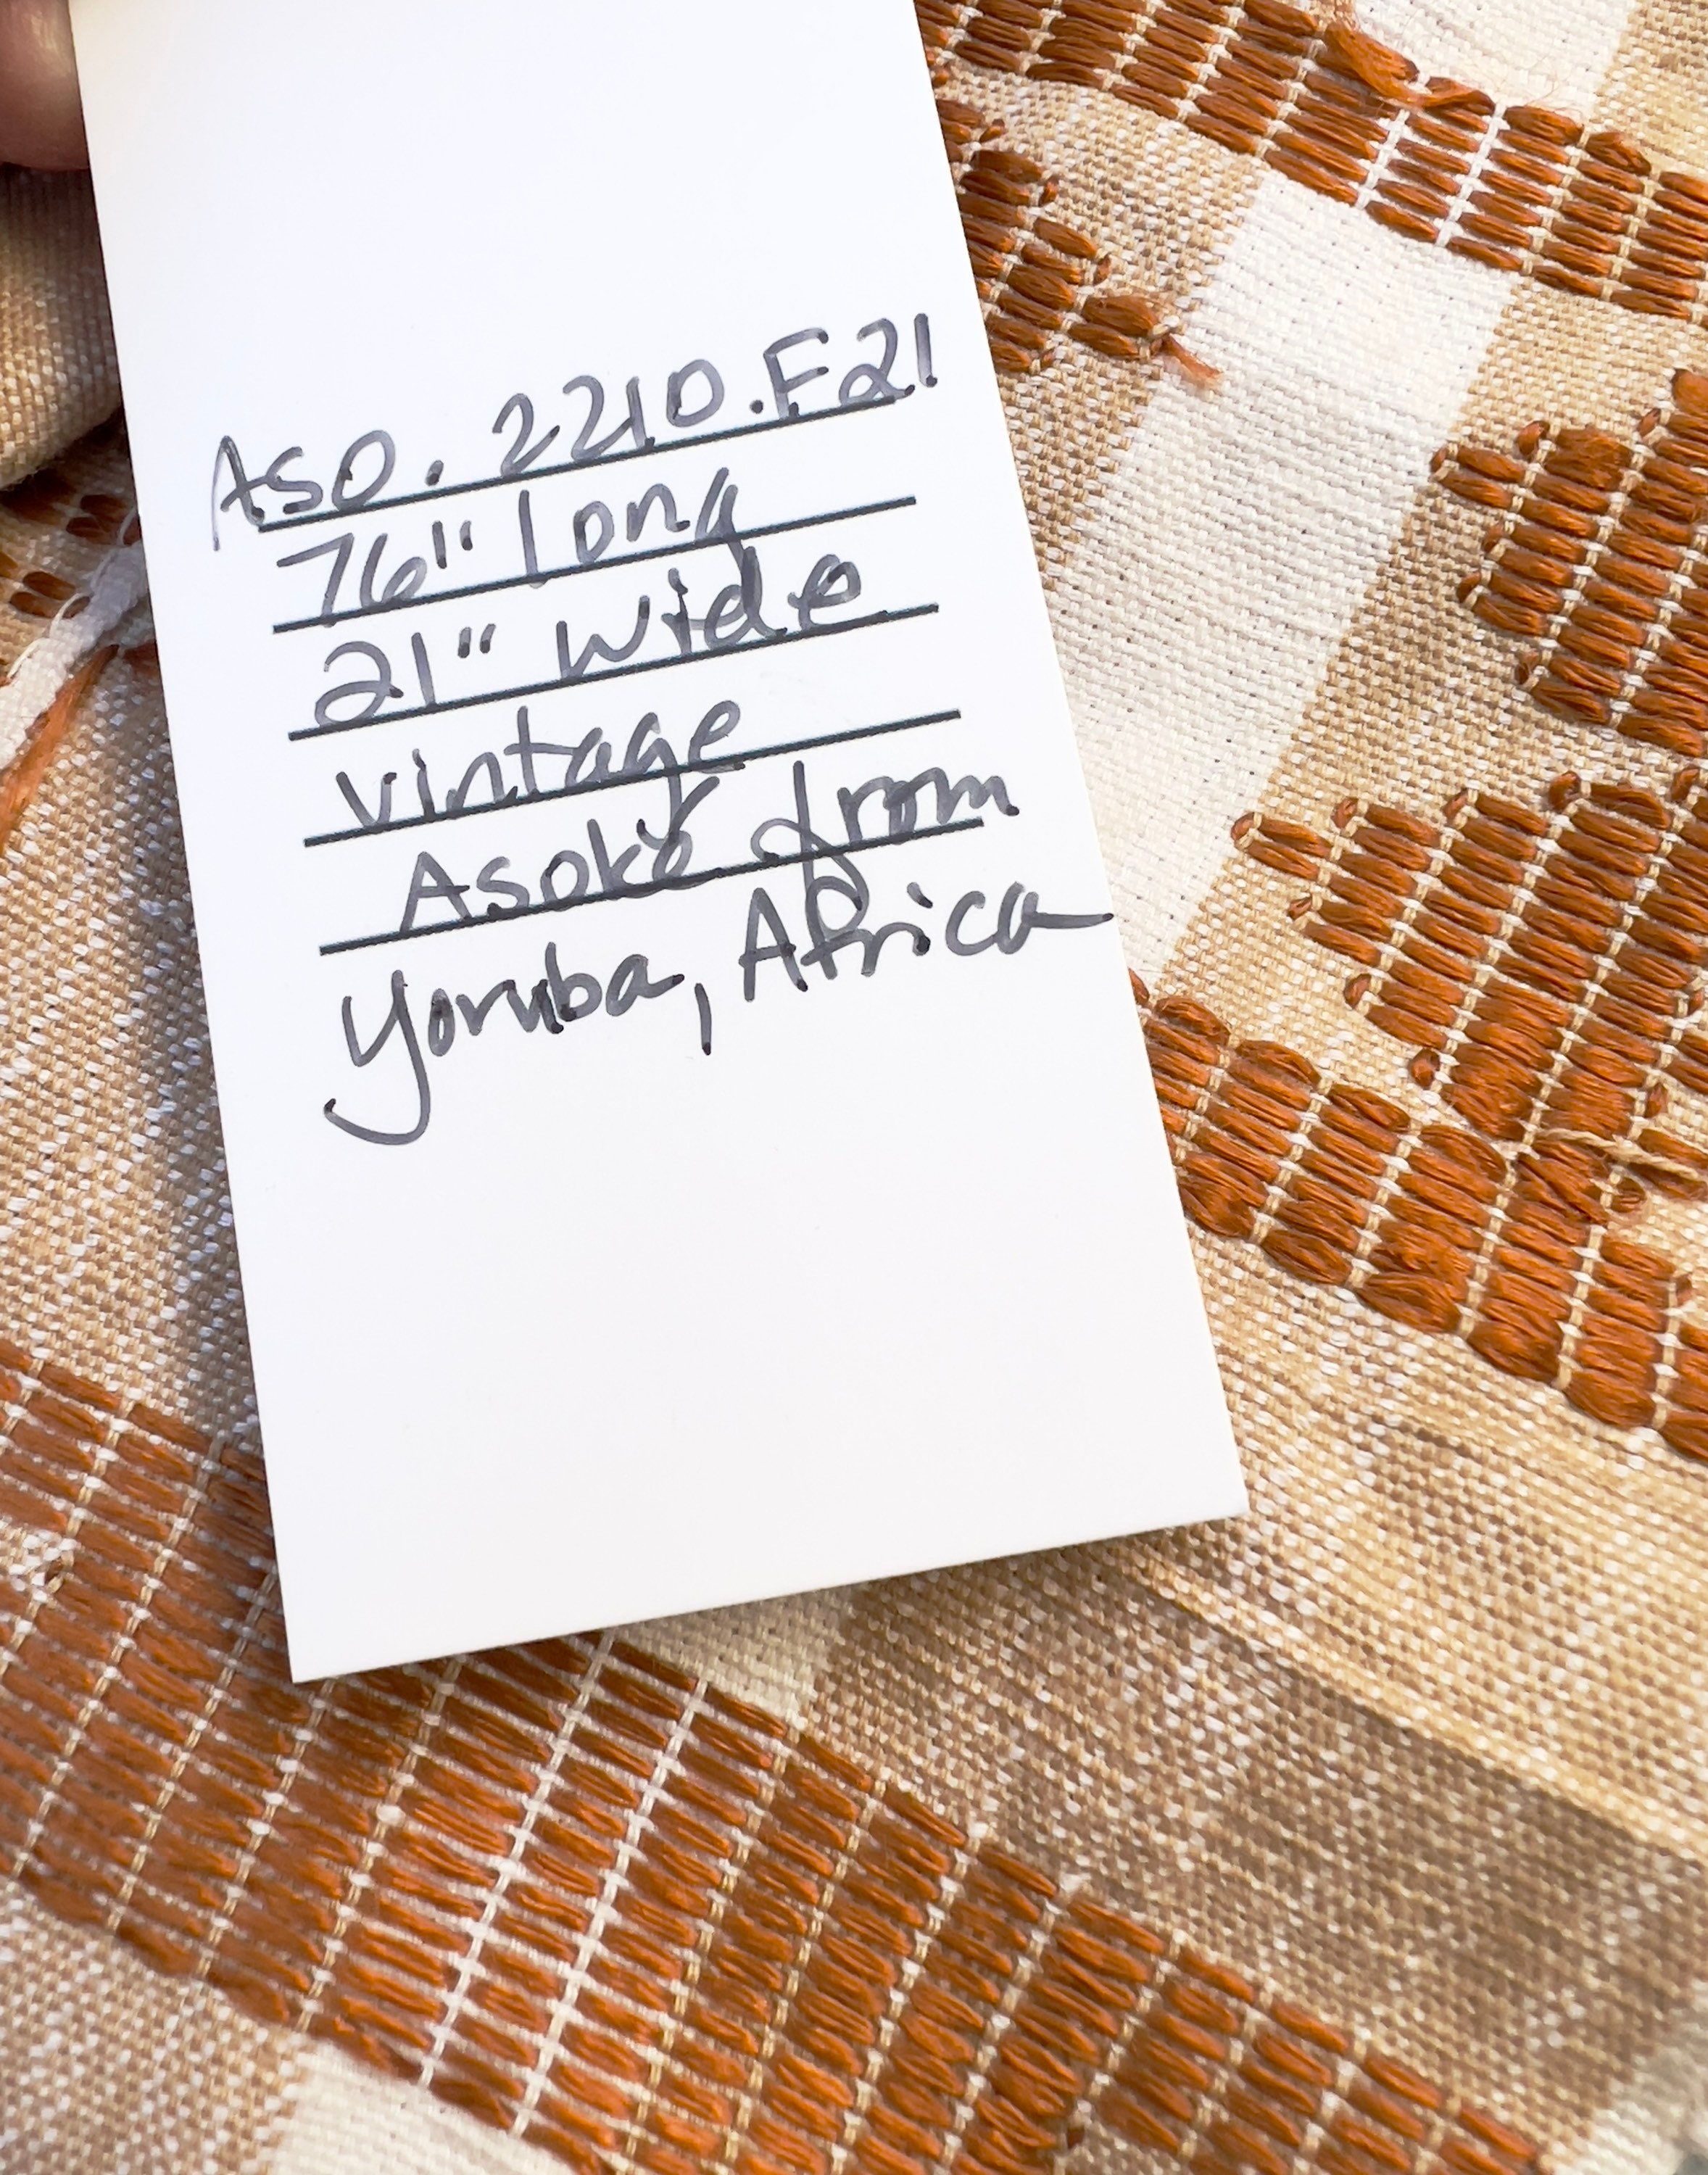 Aso. 2210.F21
76" long
21" wide
vintage
Asoke from
Yoruba, Africa